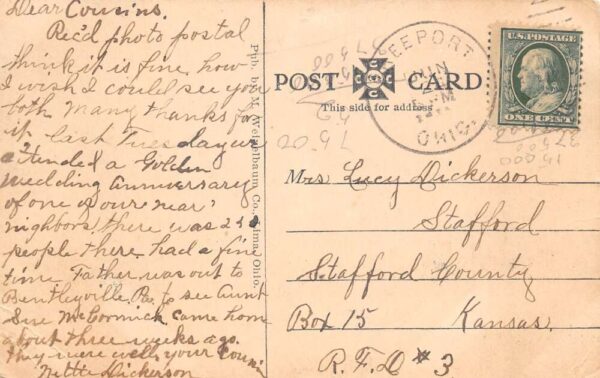 Dear Cousins.
Rec'd photo postal
think it is fine, how
I wish I could see you
both many thanks for
it last Tuesday we
attended a Golden
wedding Anniversary
of one of our near
neighbors, there was
people there had a fine
time. Father was out to
Bentleyville Pa, to see Aunt
Sue McCormick came home
about three weeks ago.
they were well, your cousin
Nettie Dickerson
Pub. by M. Weixelbaum Co. Lima, Ohio.
POST CARD
This side for address.
EEPORT
JUN
OHIO.
U.S. POSTAGE
ONE CENT
Mrs Lucy Dickerson
Stafford
Stafford County
Box 15 Kansas.
R.F.D #3